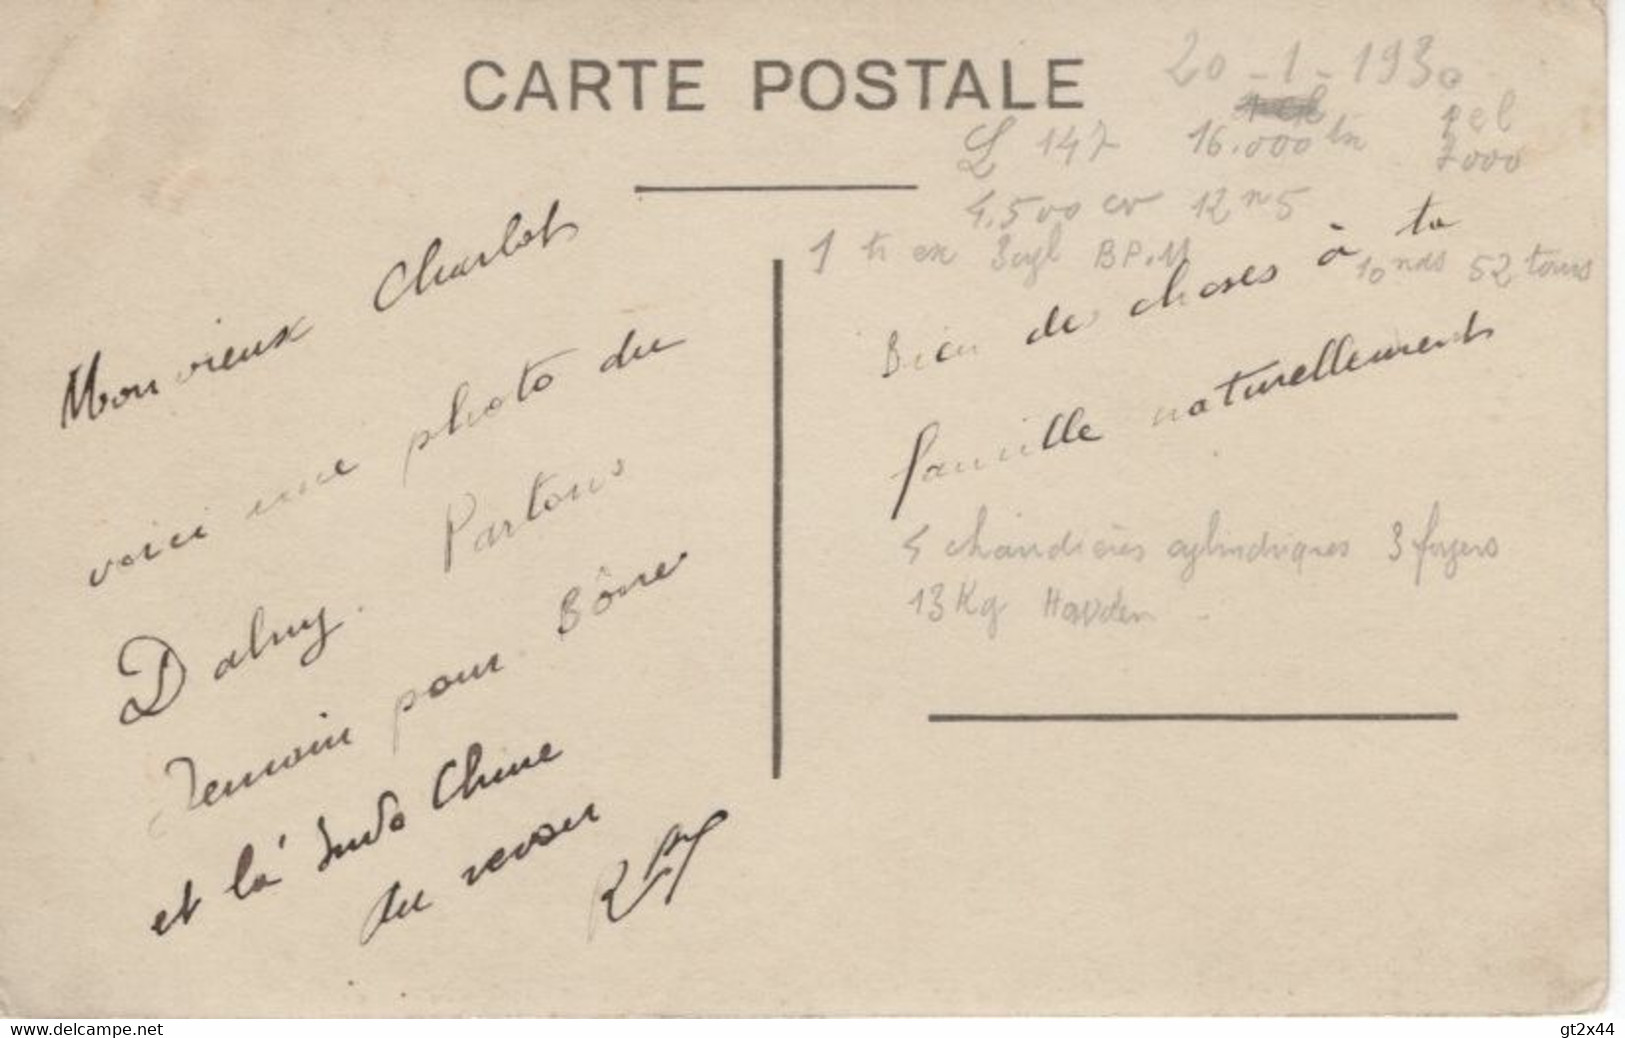 CARTE POSTALE
20-1-1930
L 147 16.000 tx pel 7000
4.500 cv 12 n 5
1 tr ex 3 cyl BP.M
10 nds 52 tours
Mon vieux Charlot
voici une photo du
Dalny. Partons
demain pour Bône
et la Indo Chine
au revoir
Bien des choses à ta
famille naturellement
4 chaudières cylindriques 3 foyers
13 Kg Howden
www.delcampe.net
gt2x44